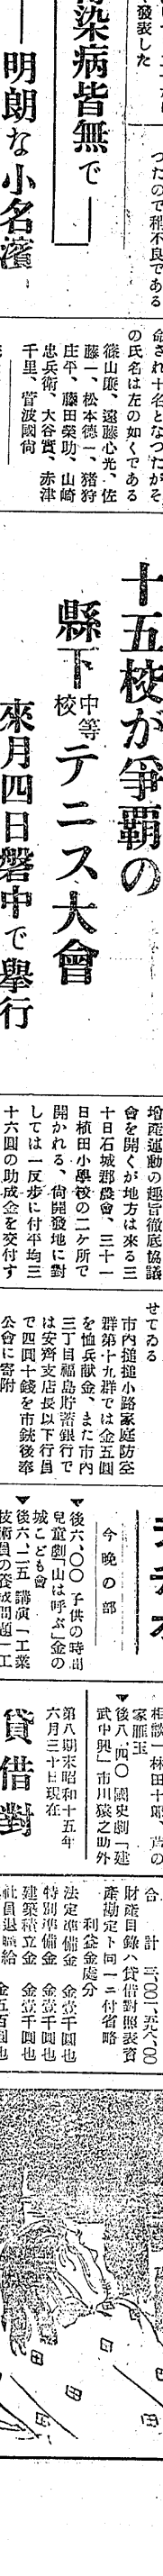 發表した
つたので稍不良である
傳染病皆無で――
――明朗な小名濱
命され十名となつたがそ
の氏名は左の如くである
篠山廉、遠藤心光、佐
藤一、松本德一、猪狩
庄平、藤田榮助、山崎
忠兵衛、大谷實、赤津
千里、菅波國尙
十五校が爭覇の
縣下中等校テニス大會
來月四日磐中で擧行
增產運動の趣旨徹底協議
會を開くが地方は來る三
十日石城郡農會、三十一
日植田小學校の二ケ所で
開かれる、尙開發地に對
しては一反步に付平均三
十六圓の助成金を交付す
せてゐる
市內搥搥小路家庭防空
群第十九群では金五圓
を恤兵献金、また市內
三丁目福島貯蓄銀行で
は安齊支店長以下行員
で四圓十錢を市銃後奉
公會に寄附
今晩の部
▼後六、〇〇 子供の時間
兒童劇「山は呼ぶ」金の
城こども會
▼後六、二五 講演「工業
技術員の養成問題」工
相談」林田十郎、芦の
家雁玉
▼後八、四〇 國史劇「建
武中興」市川猿之助外
第八期末昭和十五年
六月三十日現在
貸借對
合計 三、〇〇一、五九六、〇〇
財產目錄ハ貸借對照表資
產勘定ト同一ニ付省略
利益金處分
法定準備金 金壹千圓也
特別準備金 金壹千圓也
建築積立金 金壹千圓也
社員退職給 金五百圓也